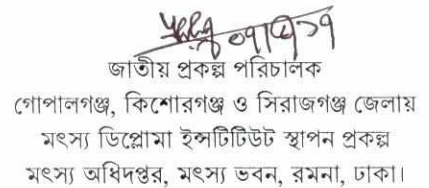 ০৭/৫/১৭
জাতীয় প্রকল্প পরিচালক
গোপালগঞ্জ, কিশোরগঞ্জ ও সিরাজগঞ্জ জেলায়
মৎস্য ডিপ্লোমা ইন্সটিটিউট স্থাপন প্রকল্প
মৎস্য অধিদপ্তর, মৎস্য ভবন, রমনা, ঢাকা।